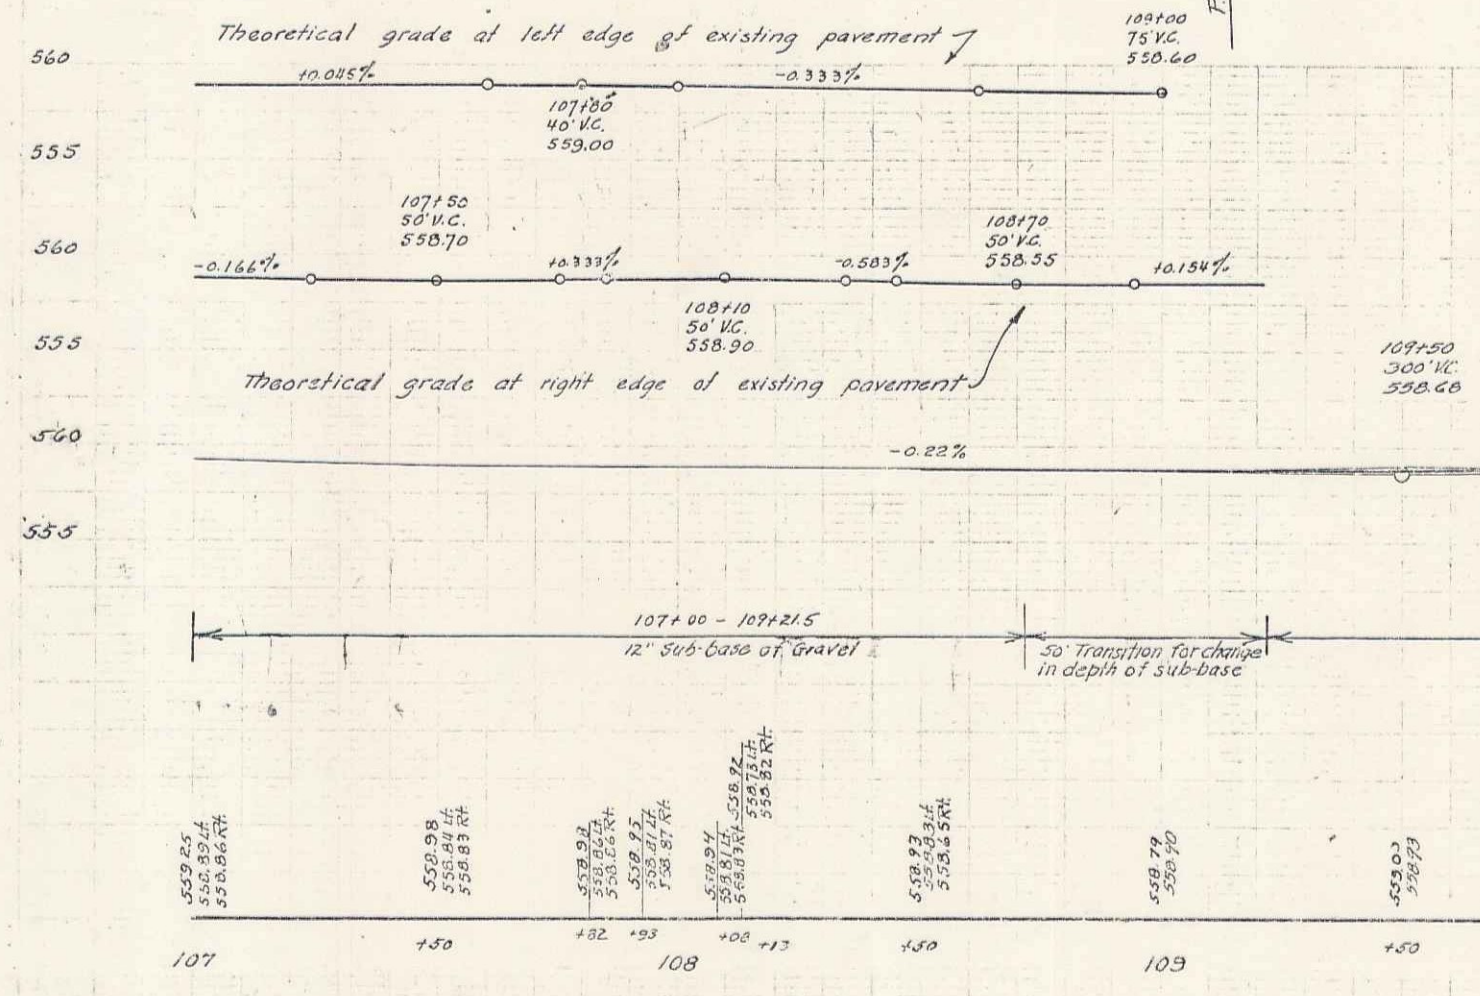 Theoretical grade at left edge of existing pavement
109+00
75' V.C.
558.60
560
+0.045%
-0.333%
107+80
40' V.C.
559.00
555
107+50
50' V.C.
558.70
108+70
50' V.C.
558.55
560
-0.166%
+0.333%
-0.583%
+0.154%
108+10
50' V.C.
558.90
555
109+50
300' V.C.
558.68
Theoretical grade at right edge of existing pavement
560
-0.22%
555
107+00 - 109+21.5
12" Sub-base of Gravel
50' Transition for change
in depth of sub-base
559.25
558.89 Lt.
558.86 Rt.
558.98
558.84 Lt.
558.83 Rt.
558.98
558.86 Lt.
558.86 Rt.
558.95
558.81 Lt.
558.87 Rt.
558.94
558.81 Lt.
558.83 Rt.
558.92
558.78 Lt.
558.82 Rt.
558.93
558.83 Lt.
558.65 Rt.
558.79
558.90
559.03
558.93
+50
+82
+93
+08
+13
+50
+50
107
108
109